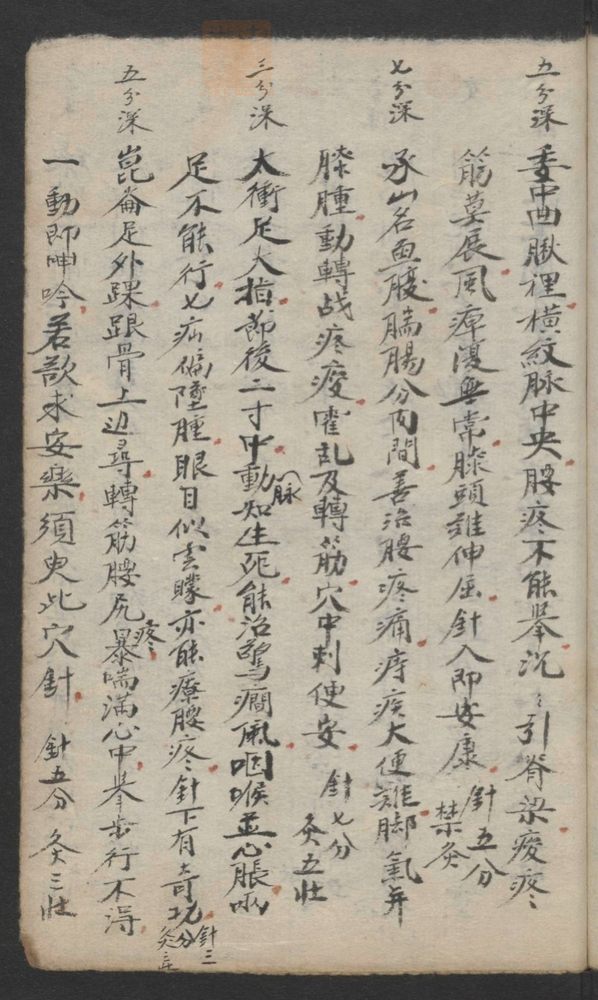 五分深 委中曲脉裡橫紋脉中央腰疼不能舉沉〻引脊梁痠疼
筋莫展風痺復無常膝頭難伸屈針入即安康 針五分 禁灸
七分深 承山名魚腹腨腸分肉間善治腰疼痛痔疾大便難脚氣并
膝腫動轉战疼痠霍乱及轉筋穴中刺便安 針七分 灸五壯
三分深 太衝足大指節後二寸中動脉知生死能治驚癇風咽喉並心脹兩
足不能行七疝偏墜腫眼目似雲矇亦能療腰疼針下有奇功 針三分 灸三壯
五分深 崑崙足外踝跟骨上边尋轉筋腰尻疼暴喘满心中举步行不得
一動即呻吟若欲求安樂須臾此穴針 針五分 灸三壯